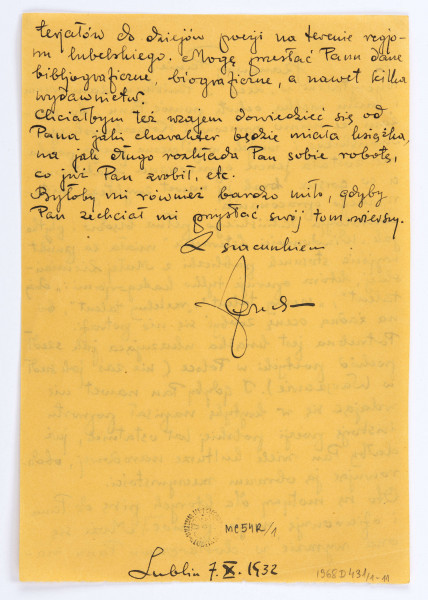 terjałów do dziejów poezji na terenie regjo-
nu lubelskiego. Mogę przesłać Panu dane
bibljograficzne, biograficzne, a nawet kilka
wydawnictw.
Chciałbym też wzajem dowiedzieć się od
Pana jaki charakter będzie miała książka,
na jak długo rozkłada Pan sobie robotę,
co już Pan zrobił, etc.
Byłoby mi również bardzo miło, gdyby
Pan zechciał mi przysłać swój tom wierszy.
Z szacunkiem
MC542/1
Lublin 7.X.1932
1968 D 431/1-11